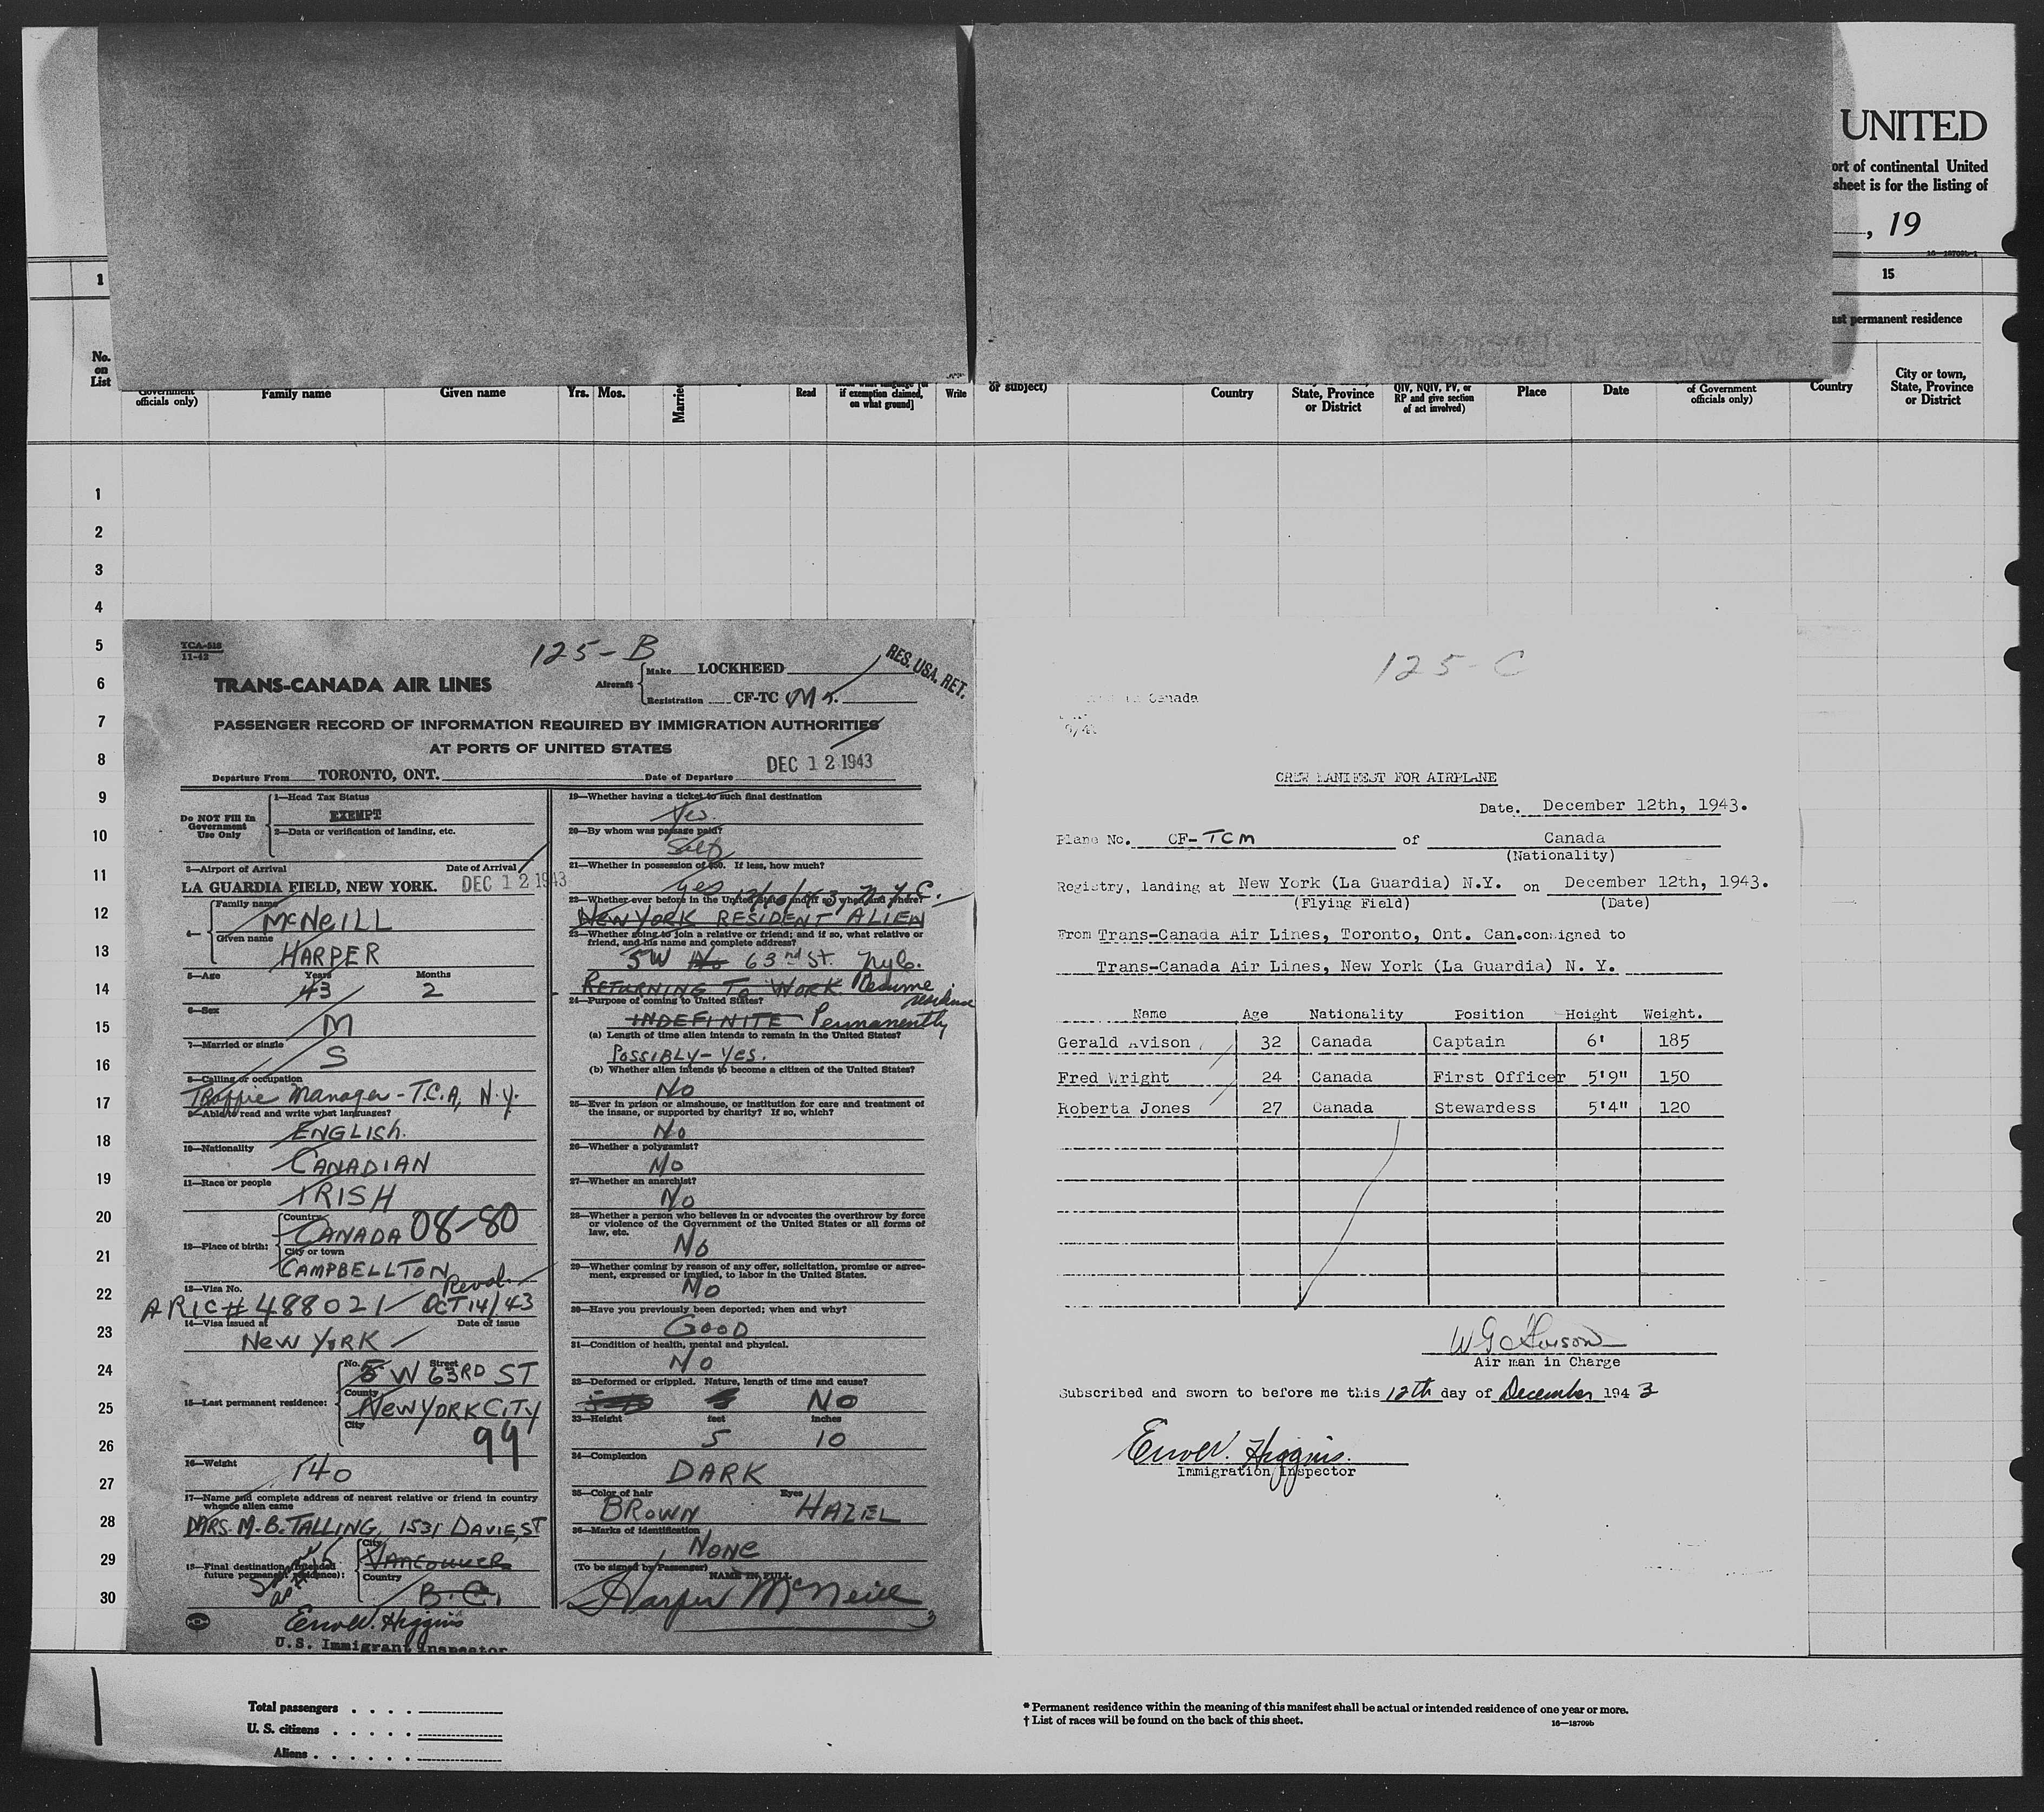 UNITED
ort of continental United
sheet is for the listing of
, 19
16—18709b-1
1
15
ast permanent residence
No.
on
List
Government
officials only)
Family name
Given name
Yrs.
Mos.
Married
Read
if exemption claimed,
on what ground]
Write
or subject)
Country
State, Province
or District
QIV, NQIV, PV, or
RP and give section
of act involved)
Place
Date
of Government
officials only)
Country
City or town,
State, Province
or District
1
2
3
4
5
6
7
8
9
10
11
12
13
14
15
16
17
18
19
20
21
22
23
24
25
26
27
28
29
30
TCA-518
11-42
125-B
RES. USA. RET.
TRANS-CANADA AIR LINES
Aircraft
Make LOCKHEED
Registration CF-TC M
PASSENGER RECORD OF INFORMATION REQUIRED BY IMMIGRATION AUTHORITIES
AT PORTS OF UNITED STATES
Departure From TORONTO, ONT.
Date of Departure DEC 12 1943
Do NOT Fill In
Government
Use Only
1—Head Tax Status
EXEMPT
2—Data or verification of landing, etc.
3—Airport of Arrival
Date of Arrival
LA GUARDIA FIELD, NEW YORK. DEC 12 1943
4—
Family name
McNEILL
Given name
HARPER
5—Age
Years
Months
43 2
6—Sex
M
7—Married or single
S
8—Calling or occupation
Traffic Manager - T.C.A, N.Y.
9—Able to read and write what languages?
ENGLISH.
10—Nationality
CANADIAN
11—Race or people
IRISH
12—Place of birth:
Country
CANADA 08-80
City or town
CAMPBELLTON
13—Visa No.
Reval.
ARIC# 488021 OCT 14/43
14—Visa issued at
Date of issue
NEW YORK
15—Last permanent residence:
No. Street
5 W 63RD ST
County
NEW YORK CITY
City
99
16—Weight
140
17—Name and complete address of nearest relative or friend in country
whence alien came
MRS. M.B. TALLING, 1531 DAVIE ST
18—Final destination (intended
future permanent residence):
City
VANCOUVER
Country
B.C.
Errol V. Higgins
U.S. Immigrant Inspector
19—Whether having a ticket to such final destination
Yes.
20—By whom was passage paid?
Self
21—Whether in possession of $50. If less, how much?
Yes 12/10/43 N.Y.C.
22—Whether ever before in the United States and if so, when and where?
NEW YORK RESIDENT ALIEN
23—Whether going to join a relative or friend; and if so, what relative or
friend, and his name and complete address?
5W No 63nd St. NyC.
RETURNING TO WORK. Resume residence
24—Purpose of coming to United States?
INDEFINITE Permanently
(a) Length of time alien intends to remain in the United States?
POSSIBLY - YES.
(b) Whether alien intends to become a citizen of the United States?
NO
25—Ever in prison or almshouse, or institution for care and treatment of
the insane, or supported by charity? If so, which?
NO
26—Whether a polygamist?
NO
27—Whether an anarchist?
NO
28—Whether a person who believes in or advocates the overthrow by force
or violence of the Government of the United States or all forms of
law, etc.
NO
29—Whether coming by reason of any offer, solicitation, promise or agree-
ment, expressed or implied, to labor in the United States.
NO
30—Have you previously been deported; when and why?
GOOD
31—Condition of health, mental and physical.
NO
32—Deformed or crippled. Nature, length of time and cause?
NO
33—Height feet inches
5 10
34—Complexion
DARK
35—Color of hair Eyes
BROWN HAZEL
36—Marks of identification
NONE
(To be signed by Passenger)
NAME IN FULL
Harper McNeill
3
125-C
Canada
CREW MANIFEST FOR AIRPLANE
Date. December 12th, 1943.
Plane No. CF-TCM of Canada
(Nationality)
Registry, landing at New York (La Guardia) N.Y. on December 12th, 1943.
(Flying Field) (Date)
From Trans-Canada Air Lines, Toronto, Ont. Can. consigned to
Trans-Canada Air Lines, New York (La Guardia) N. Y.
Name Age Nationality Position Height Weight.
Gerald Avison 32 Canada Captain 6' 185
Fred Wright 24 Canada First Officer 5'9" 150
Roberta Jones 27 Canada Stewardess 5'4" 120
W G Avison
Air man in Charge
Subscribed and sworn to before me this 12th day of December 1943
Errol V. Higgins.
Immigration Inspector
Total passengers . . . .
U. S. citizens . . . . .
Aliens . . . . . .
* Permanent residence within the meaning of this manifest shall be actual or intended residence of one year or more.
† List of races will be found on the back of this sheet.
16—18709b